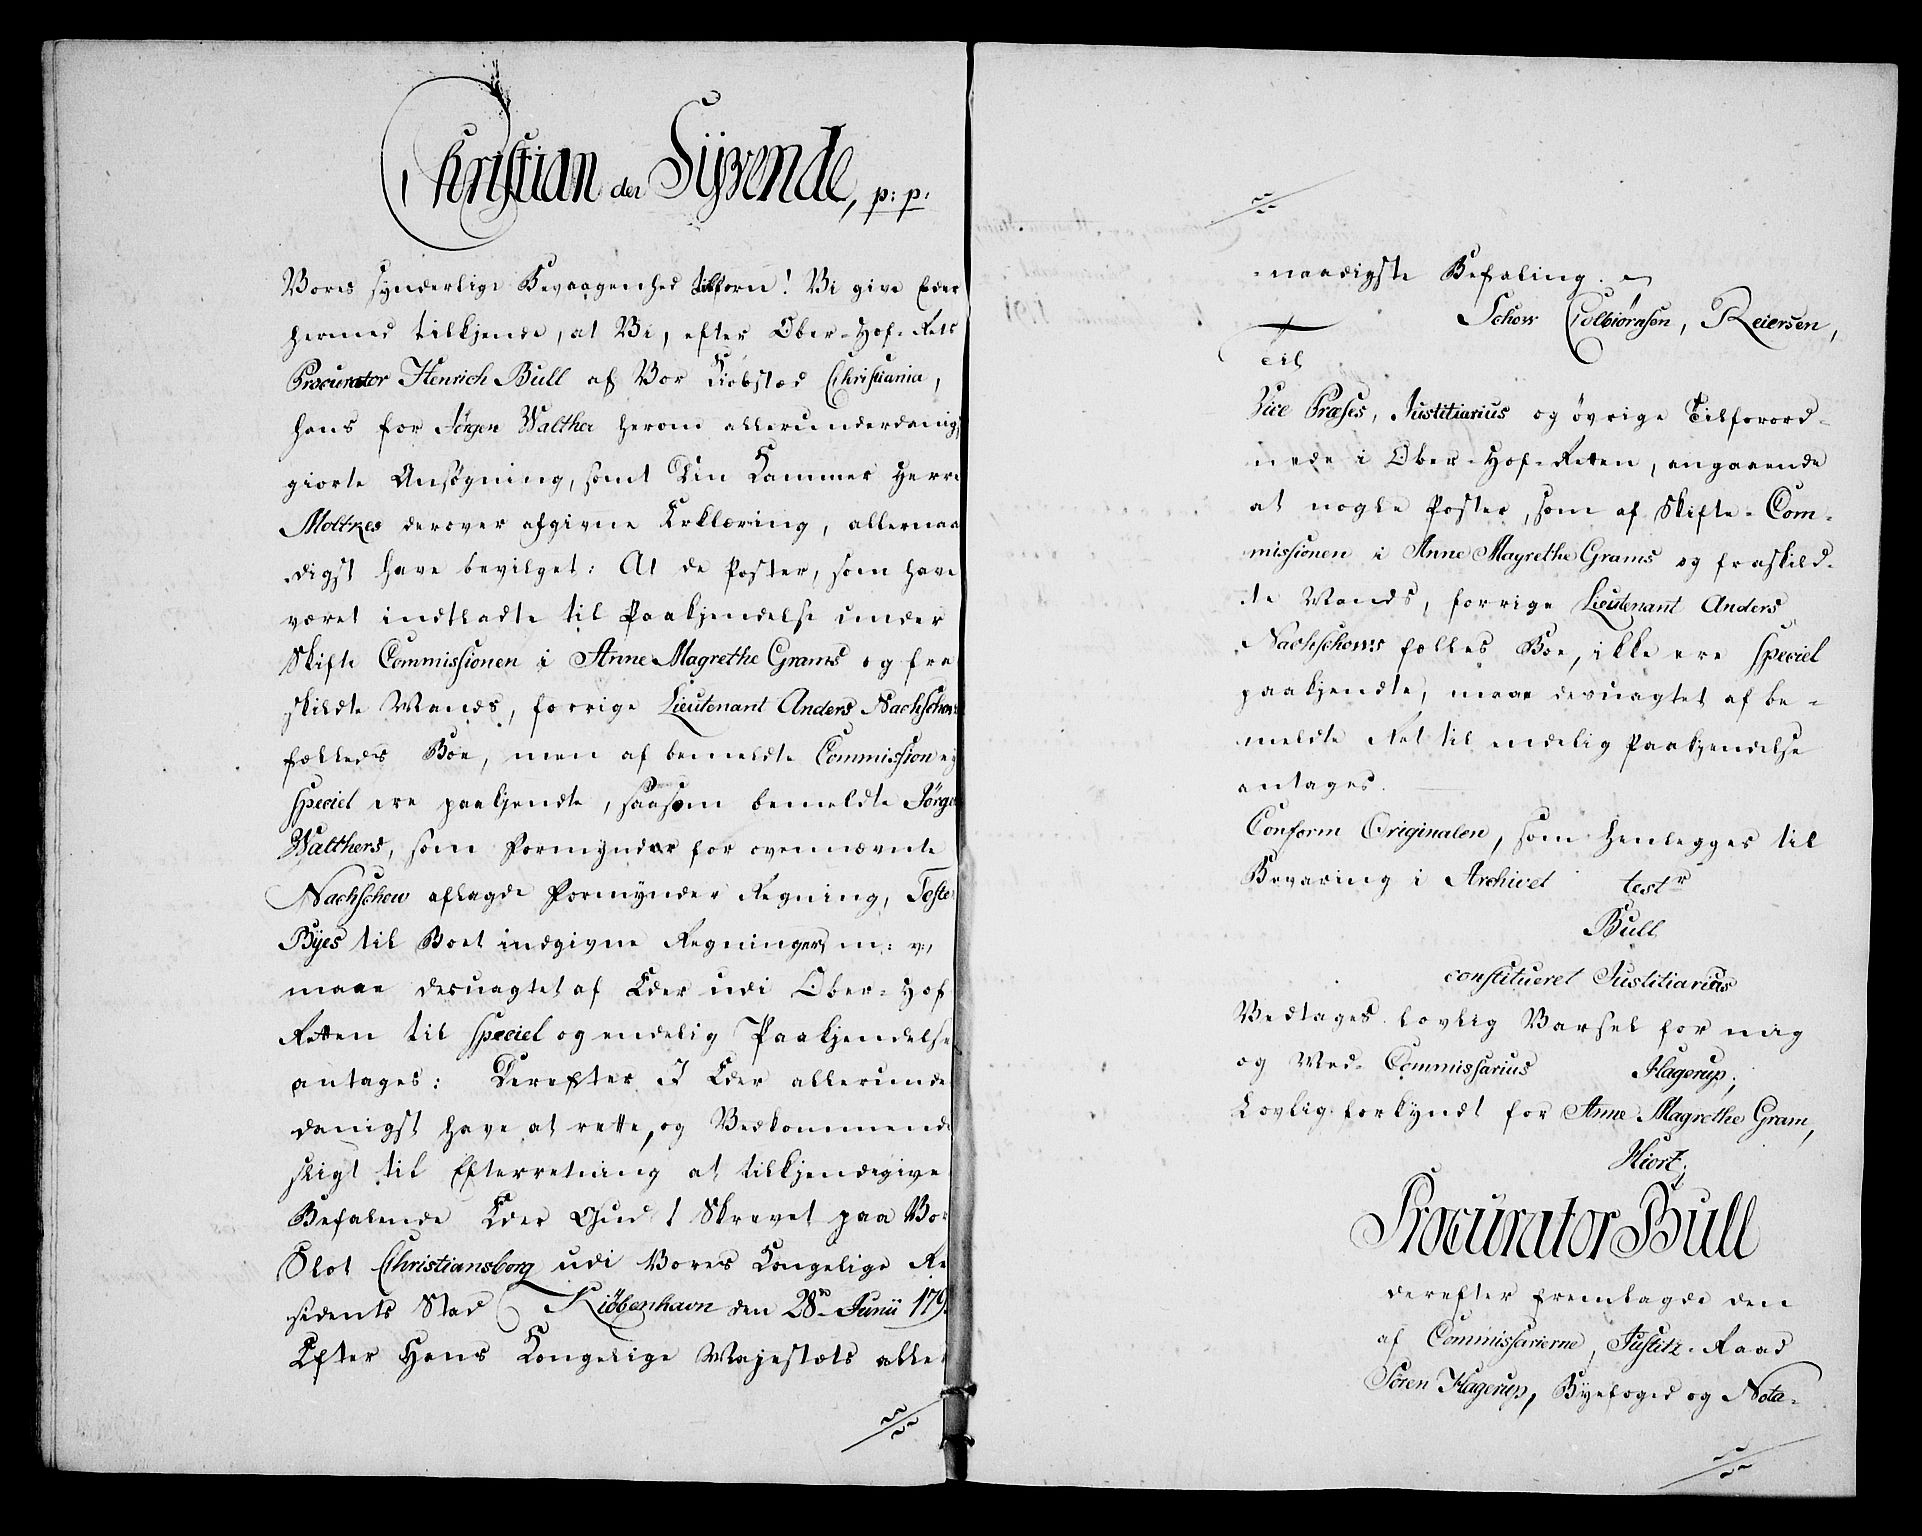 Christian der Syvende, p: p:
Vores synderlige Bevaagenhed tilforn! Vi give Eder
hermed tilkjende, at Vi, efter Ober-Hof-Rets
Procurator Henrich Bull af Vor Kiøbstæd Christiania,
hans for Jørgen Walther herom allerunderdanigst
giorte Ansøgning, samt Din Kammer Herre
Moltkes derover afgivne Erklæring, allernaa
digst have bevilget: At de Poster, som have
været indtladte til Paakjendelse under
Skifte Commissionen i Anne Magrethe Grams og fra
skildte Mands, forrige Lieutenant Anders Nachschows
fælleds Boe, men af bemeldte Commission ej
speciel ere paakjendte, saasom bemeldte Jørgen
Walthers, som Formynder for ovennævnte
Nachschow aflagde Formynder Regning, Toste
Byes til Boet indgivne Regninger, m: v:,
maae desuagtet af Eder udi Ober-Hof
Retten til speciel og endelig Paakjendelse
antages: Derefter I Eder allerunder
danigst have at rette, og Vedkommende
sligt til Efterretning at tilkjendegive
Befalende Eder Gud! Skrevet paa Vor
Slot Christiansborg udi Vores Kongelige Re
sidents Stad Kiøbenhavn den 28de Junii 179
Efter Hans Kongelige Majestæts aller
naadigste Befaling.
Schow Colbiørnsen, Reiersen,
Til
Vice Præses, Justitiarius og øvrige Tilforord-
nede i Ober-Hof-Retten, angaaende
at nogle Poster, som af Skifte-Com-
missionen i Anne Magrethe Grams og fraskild-
te Mands, forrige Lieutenant Anders
Nachschows fælles Boe, ikke ere speciel
paakjendte, maae desuagtet af be-
meldte Ret til endelig Paakjendelse
antages.
Conform Originalen, som henlegges til
Bevaring i Archivet testr
Bull
constitueret Justitiarius
Vedtages lovlig Varsel for mig
og Med-Commissarius Hagerup,
Lovlig forkyndt for Anne Magrethe Gram,
Hiort,
Procurator Bull
derefter fremlagde den
af Commissarierne, Justitz-Raad
Søren Hagerup, Byefoged og Nota-